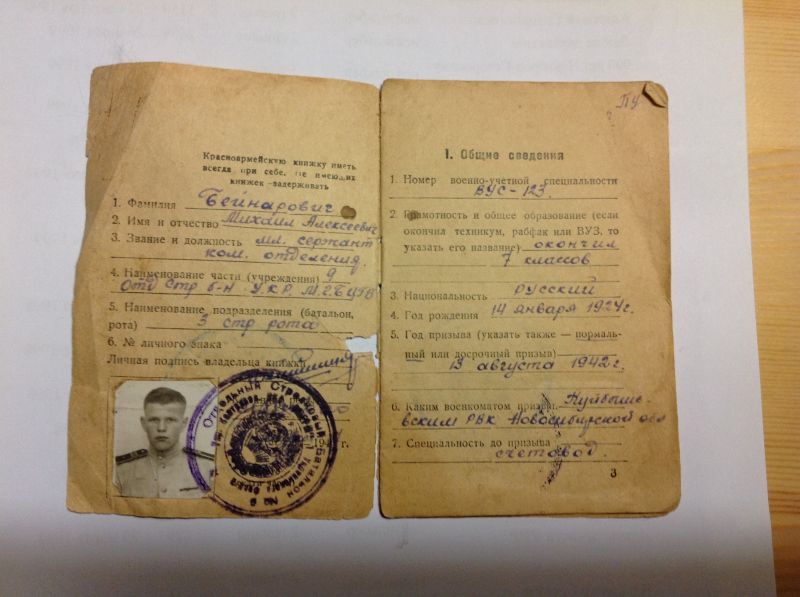 Красноармейскую книжку иметь
всегда при себе. Не имеющих
книжек - задерживать
1. Фамилия Бейнарович
2. Имя и отчество Михаил Алексеевич
3. Звание и должность мл. сержант
ком. отделения
4. Наименование части (учреждения) 9
Отд Стр б-н УКР.
5. Наименование подразделения (батальон,
рота) 3 стр рота
6. № личного знака
Личная подпись владельца книжки
Отдельный Стрелковый Батальон
№ 9
г.
ПУ
1. Общие сведения
1. Номер военно-учетной специальности
ВУС-123
2. Грамотность и общее образование (если
окончил техникум, рабфак или ВУЗ, то
указать его название) окончил
7 классов
3. Национальность русский
4. Год рождения 14 января 1924г.
5. Год призыва (указать также — нормаль-
ный или досрочный призыв)
13 августа 1942г.
6. Каким военкоматом призван Куйбыше-
вским РВК Новосибирской обл
7. Специальность до призыва
счетовод.
3